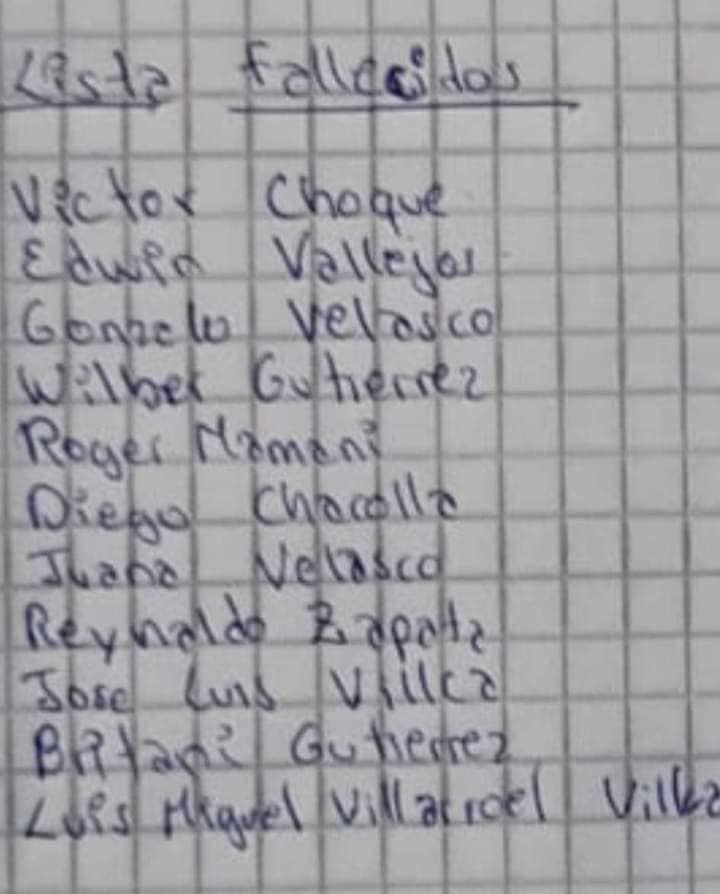 Lista fallecidos
Victor Choque
Edwin Vallejos
Gonzalo Velasco
Wilber Gutierrez
Roger Mamani
Diego Chacolla
Juana Velasco
Reynaldo Zapata
Jose Luis Villca
Britani Gutierrez
Luis Miguel Villarroel Villca